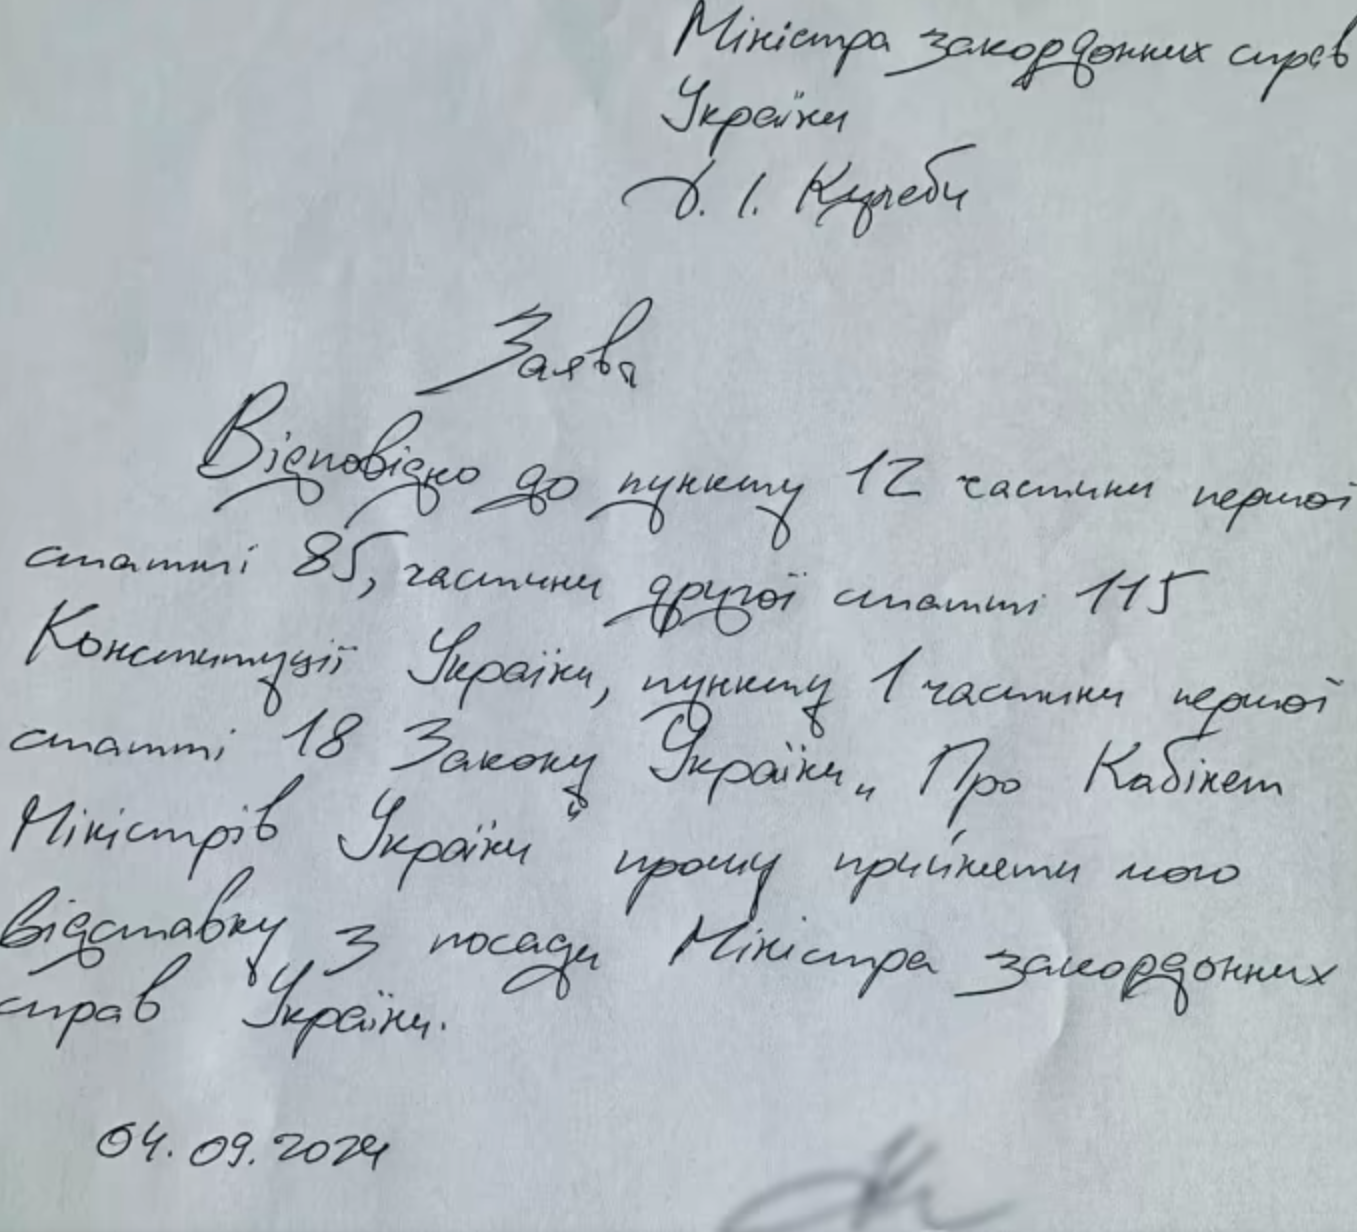 Міністра закордонних справ
України
Д. І. Кулеби
Заява
Відповідно до пункту 12 частини першої
статті 85, частини другої статті 115
Конституції України, пункту 1 частини першої
статті 18 Закону України „Про Кабінет
Міністрів України“ прошу прийняти мою
відставку з посади Міністра закордонних
справ України.
04.09.2024